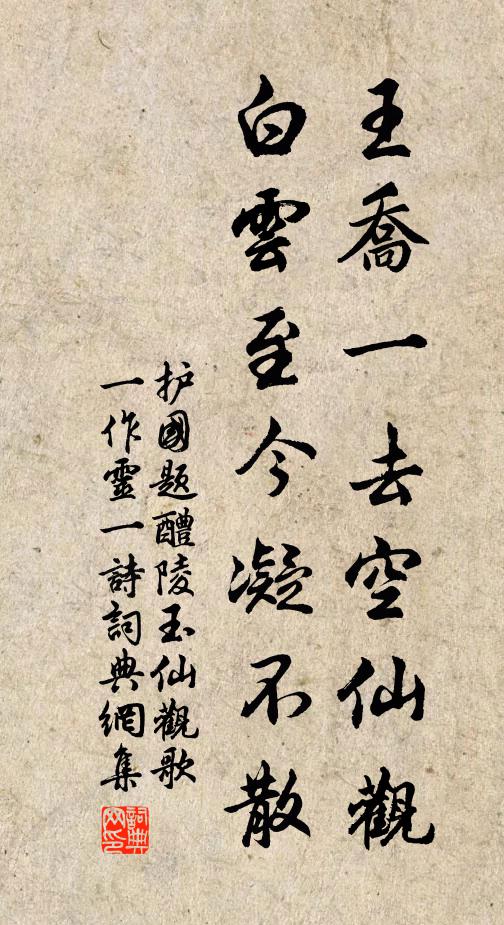 王喬一去空仙觀
白雲至今凝不散
护國题醴陵玉仙觀歌
一作靈一詩詞典網集
詞典网印